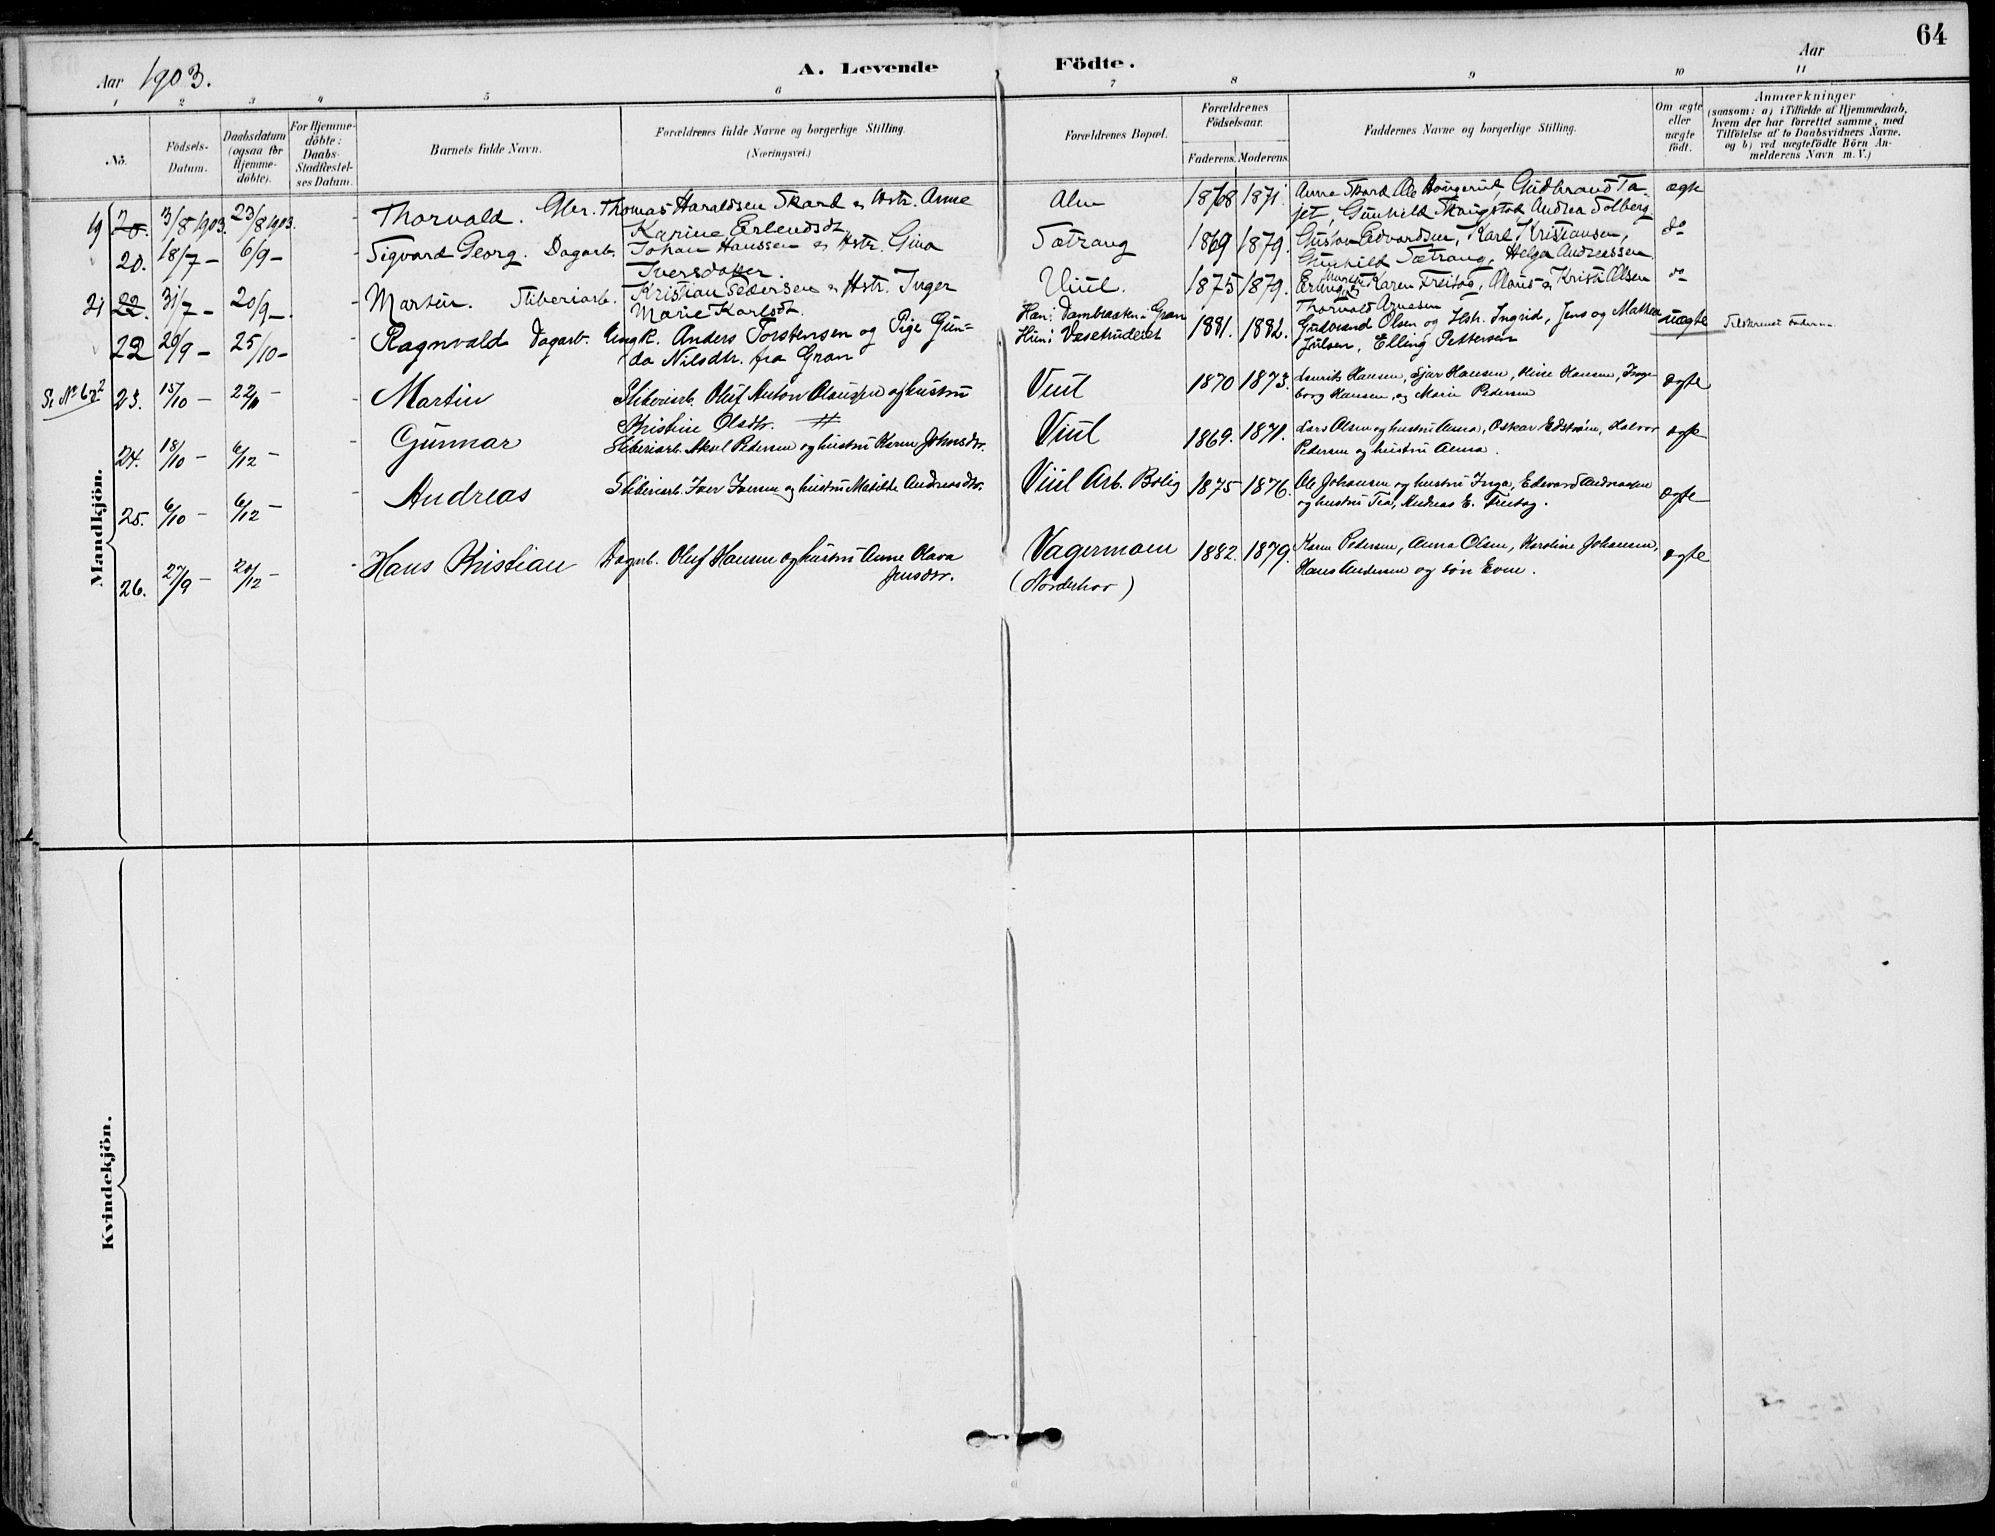 64
Aar 1903.
A. Levende Födte.
Aar
1 2 3 4 5 6 7 8 9 10 11
No.
Födsels-Datum.
Daabsdatum (ogsaa för Hjemme-döbte).
For Hjemme-döbte: Daabs-Stadfæstel-ses Datum.
Barnets fulde Navn.
Forældrenes fulde Navne og borgerlige Stilling.
(Næringsvei.)
Forældrenes Bopæl.
Forældrenes Födselsaar.
Faderens. Moderens.
Faddernes Navne og borgerlige Stilling.
Om ægte eller uægte födt.
Anmærkninger
(saasom: a) i Tilfælde af Hjemmedaab,
hvem der har forrettet samme, med
Tilföielse af to Daabsvidners Navne,
og b) ved uægtefödte Börn An-
melderens Navn m. V.)
Mandkjön.
19 20. 3/8 1903. 23/8 1903. - Thorvald. Gbr. Thomas Haraldsen Skard Hstr. Anne Alm 1868 1871. Anna Skard Ole Haugerud, Gudbrand Ta-
Karine Erlendsdt. jet, Gunhild Skaugstad Andrea Solberg ægte
20. 18/7 - 6/9 - - Sigvard Georg. Dagarb. Johan Hanssen Hstr. Gina Sætrang 1869 1879. Gustav Edvardsen, Karl Kristiansen, do
Iversdatter. Gunhild Sætrang, Helga Andreassen
21 22. 31/7 - 20/9 -. - Martin. Sliberiarb. Kristian Pedersen Hstr. Inger Viul. 1875 1879. Karen Freitag, Olaus Kristi Olsen do
Marie Karlsdt. Thorvald Arnesen
22 20/9 - 25/10 - Ragnvald Dagarb. Ungk. Anders Torstensen og Pige Gun- Han: Dambraaten Gran 1881. 1882. Gudbrand Olsen og Hstr. Ingrid, Jens og Mathea uægte
da Nilsdtr. fra Gran Hun: Vasetrudeiet Julsen, Elling Pettersen
23. 15/10 - 22/11 - - Martin Sliberiarb. Oluf Anton Olaussen og hustru Viul 1870 1873. Henrik Hansen, Hansen, Oline Hansen, Inge- ægte
Kristine Olsdtr. borg Hansen, og Marie Pedersen
24. 18/10 - 6/12 - - Gunnar Sliberiarb. Aksel Pedersen og hustru Karen Johnsdtr. Viul 1869. 1871. Lars Olsen og hustru Anna, Oskar Edström, Halvor ægte
Pedersen og hustru Anna.
25. 6/10 - 6/12 - - Andreas Sliberiarb. Iver Iversen og hustru Matilde Andreasdtr. Viul Arb. Bolig 1875 1876. Ole Johansen og hustru Inga, Edvard Andreassen ægte
og hustru Tea, Andreas E. Freitag.
26. 27/9 - 20/12 - - Hans Kristian Dagarb. Oluf Hansen og hustru Anne Olava Vagermoen 1882. 1879. Karen Pedersen, Anna Olsen, Karoline Johansen, ægte
Jensdtr. (Norderhov) Hans Andersen og søn Even.
Kvindekjön.